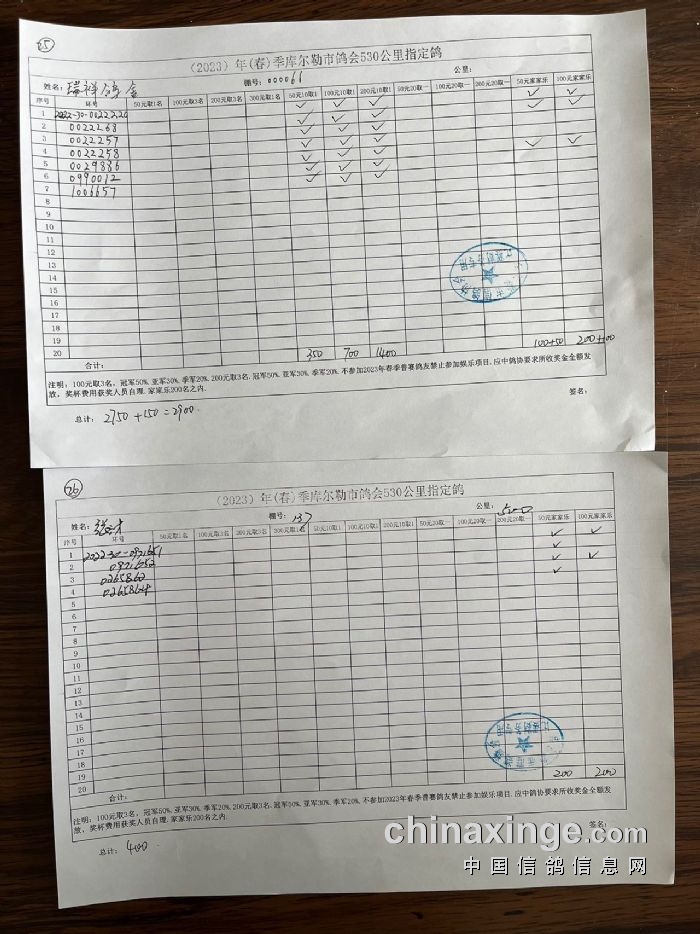 25
（2023）年(春)季库尔勒市鸽会530公里指定鸽
姓名: 瑞祥鸽舍 棚号: 000061 公里:
序号 环号 50元取1名 100元取3名 200元取3名 300元取1名 50元10取1 100元10取1 200元10取1 50元20取一 100元20取一 200元20取一 50元家家乐 100元家家乐
1 2022-30-0022220
2 0022268
3 0022257
4 0022258
5 0029886
6 0990012
7 1006657
8
9
10
11
12
13
14
15
16
17
18
19
20
合计: 350 700 1400 100+50 200+100
注明: 100元取3名, 冠军50%, 亚军30%, 季军20%, 200元取3名, 冠军50%, 亚军30%, 季军20%, 不参加2023年春季普赛鸽友禁止参加娱乐项目, 应中鸽协要求所收奖金全额发
放, 奖杯费用获奖人员自理. 家家乐200名之内.
签名:
总计: 2750+150=2900.
26
（2023）年(春)季库尔勒市鸽会530公里指定鸽
姓名: 棚号: 137 公里: 500
序号 环号 50元取1名 100元取3名 200元取3名 300元取1名 50元10取1 100元10取1 200元10取1 50元20取一 100元20取一 200元20取一 50元家家乐 100元家家乐
1 2022-30-0921651
2 0921652
3 0265862
4 0265864
5
6
7
8
9
10
11
12
13
14
15
16
17
18
19
20
合计: 200 200
注明: 100元取3名, 冠军50%, 亚军30%, 季军20%, 200元取3名, 冠军50%, 亚军30%, 季军20%, 不参加2023年春季普赛鸽友禁止参加娱乐项目, 应中鸽协要求所收奖金全额发
放, 奖杯费用获奖人员自理. 家家乐200名之内.
签名:
总计: 400
chinaxinge.com
中国信鸽信息网